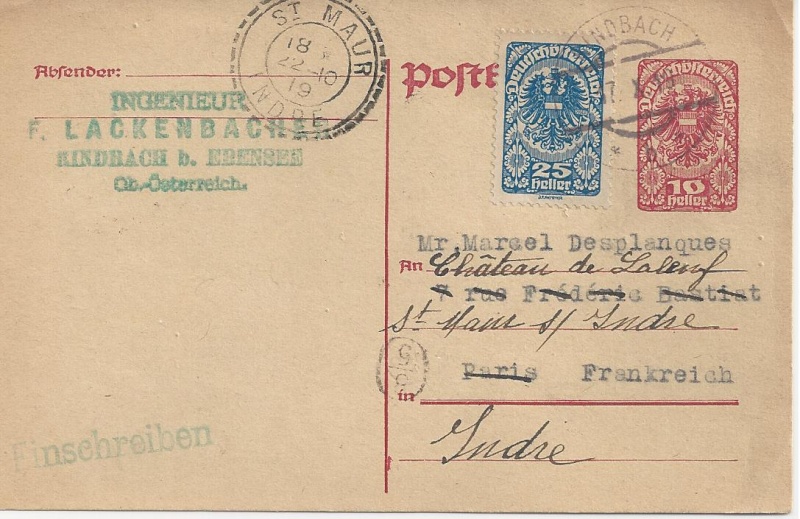 ST MAUR
18 *
22-10
19
INDRE
Absender:
INGENIEUR
F. LACKENBACHER
RINDBACH b. EBENSEE
Ob.-Österreich.
Einschreiben
Postk
Deutschösterreich
25
Heller
RINDBACH
Deutschösterreich
10
Heller
Mr. Marcel Desplanques
An Château de Laleuf
7 rue Frédéric Bastiat
St Maur s/ Indre
Paris Frankreich
in
Indre